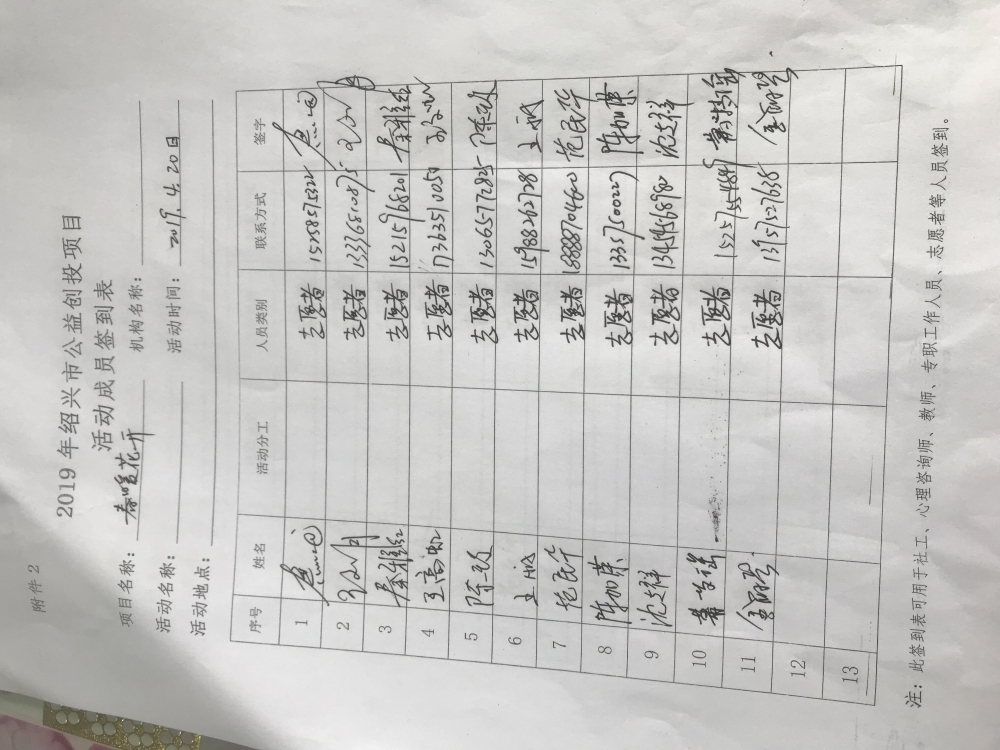 附件 2
2019 年绍兴市公益创投项目
活动成员签到表
项目名称： 春暖花开 机构名称：
活动名称： 活动时间： 2019.4.20日
活动地点：
序号 姓名 活动分工 人员类别 联系方式 签字
1 志愿者 15258575322
2 志愿者 13336810875
3 秦雅红 志愿者 15215968201 秦雅红
4 志愿者 17363510050
5 陈 志愿者 13065772825 陈
6 王 志愿者 15988262728 王
7 范民华 志愿者 18888704640 范民华
8 陈加荣 志愿者 13357500227 陈加荣
9 沈文祥 志愿者 13454568980 沈文祥
10 志愿者
11 金丽 志愿者 13757527638 金丽
12
13
注：此签到表可用于社工、心理咨询师、教师、专职工作人员、志愿者等人员签到。